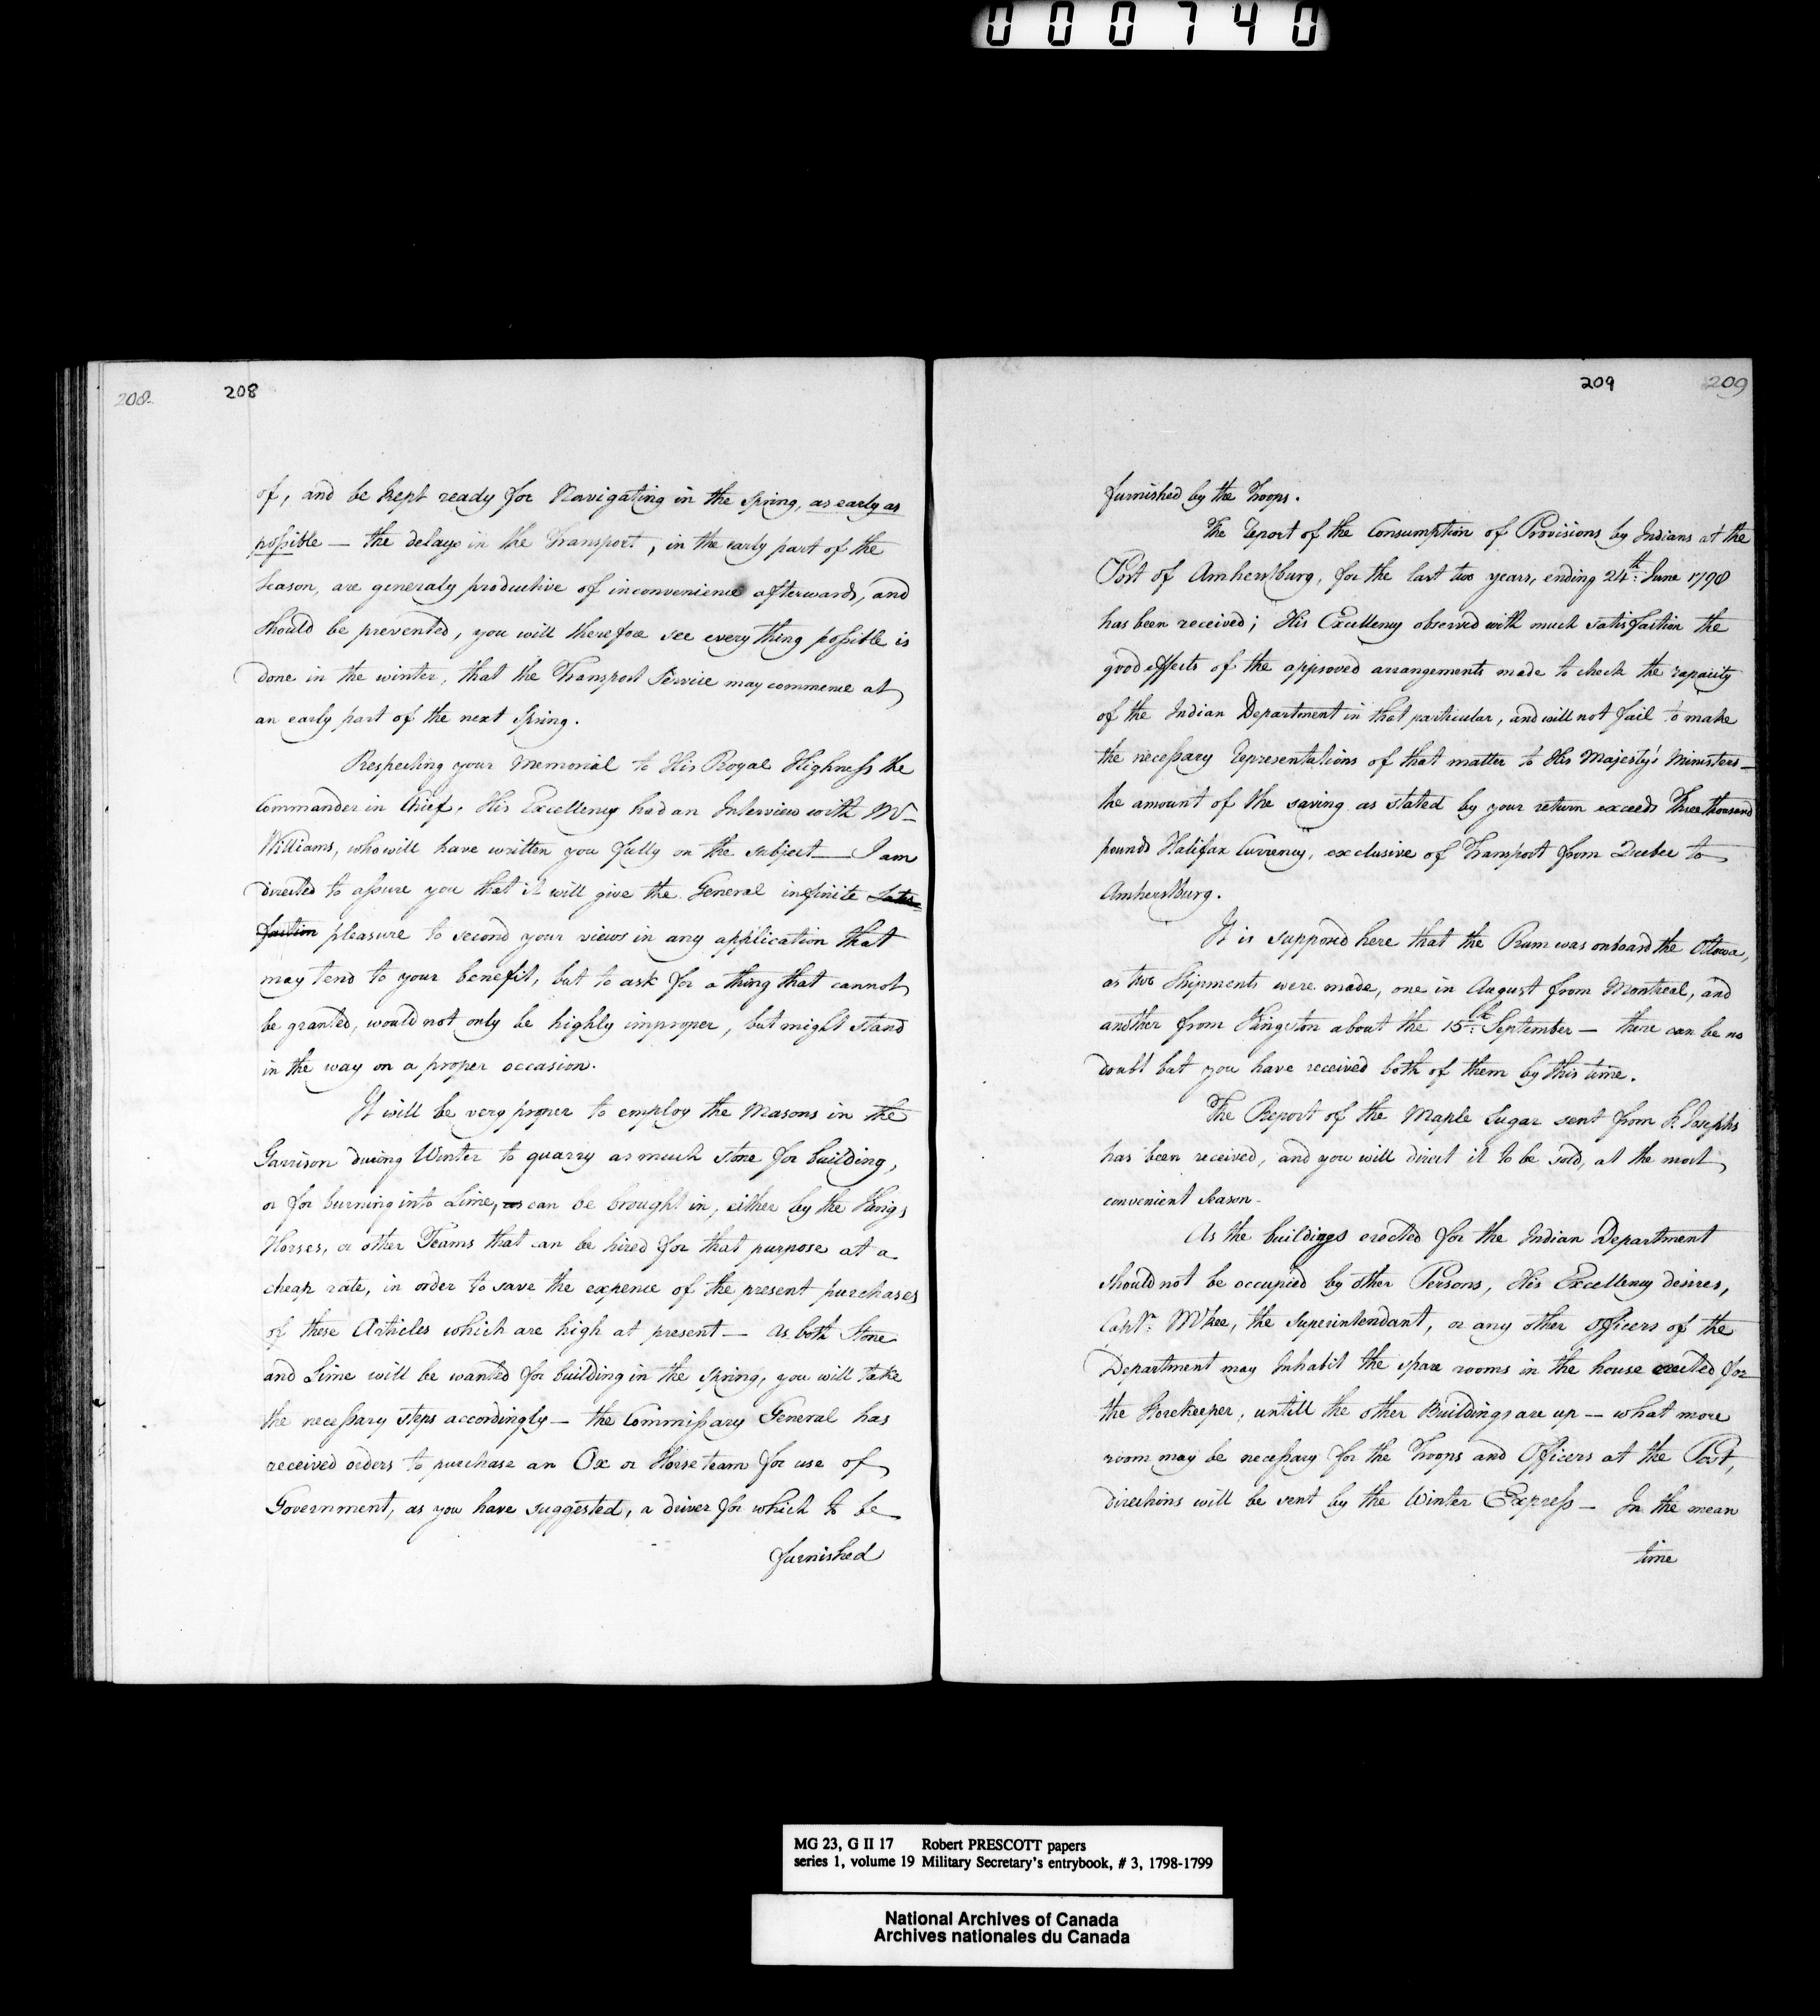 000740
208 208
of, and be kept ready for Navigating in the spring, as early as
possible — the delays in the Transport, in the early part of the
Season, are generaly productive of inconvenience afterwards, and
should be prevented, you will therefore see every thing possible is
done in the winter, that the Transport Service may commence at
an early part of the next Spring.
Respecting your Memorial to His Royal Highness the
Commander in Chief, His Excellency had an Interview with Mr
Williams, who will have written you fully on the subject — I am
directed to assure you that it will give the General infinite Satis=
faction pleasure to second your views in any application that
may tend to your benefit, but to ask for a thing that cannot
be granted, would not only be highly improper, but might stand
in the way on a proper occasion.
It will be very proper to employ the Masons in the
Garrison during Winter to quarry as much stone for building,
or for burning into Lime, as can be brought in, either by the Kings
Horses, or other Teams that can be hired for that purpose at a
cheap rate, in order to save the expence of the present purchases
of these Articles which are high at present — as both Stone
and Lime will be wanted for building in the Spring, you will take
the necessary steps accordingly — the Commissary General has
received orders to purchase an Ox or Horse team for use of
Government, as you have suggested, a driver for which to be
furnished
209 209
furnished by the Troops.
The Report of the Consumption of Provisions by Indians at the
Post of Amherstburg, for the last two years, ending 24th: June 1798
has been received; His Excellency observed with much satisfaction the
good effects of the approved arrangements made to check the rapacity
of the Indian Department in that particular, and will not fail to make
the necessary representations of that matter to His Majesty's Ministers —
he amount of the saving as stated by your return exceeds Three thousand
pounds Halifax Currency, exclusive of Transport from Quebec to
Amherstburg.
It is supposed here that the Rum was onboard the Ottowa,
as two Shipments were made, one in August from Montreal, and
another from Kingston about the 15th: September — there can be no
doubt but you have received both of them by this time.
The Report of the Maple Sugar sent from St. Josephs
has been received, and you will direct it to be sold, at the most
convenient Season -
As the buildings erected for the Indian Department
should not be occupied by other Persons, His Excellency desires,
Captn: McKee, the Superintendant, or any other officers of the
Department may Inhabit the spare rooms in the house erected for
the Storekeeper, untill the other Buildings are up — what more
room may be necessary for the Troops and Officers at the Post,
directions will be sent by the Winter Express — In the mean
time
MG 23, G II 17 Robert PRESCOTT papers
series 1, volume 19 Military Secretary's entrybook, # 3, 1798-1799
National Archives of Canada
Archives nationales du Canada